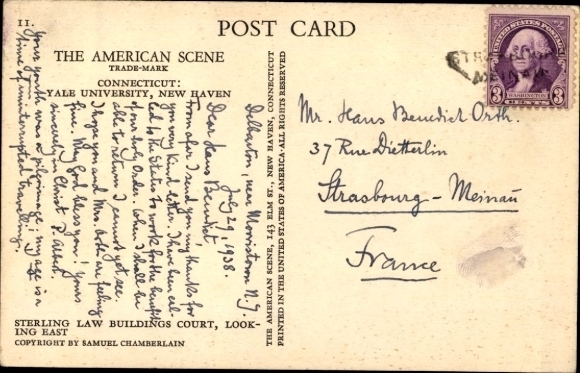 11.
POST CARD
THE AMERICAN SCENE
TRADE-MARK
CONNECTICUT:
YALE UNIVERSITY, NEW HAVEN
Delbarton, near Morristown N.J.
July 29, 1938.
Dear Hans Benedict
From afar I send you my thanks for
your very kind letter. I have been cal-
led to the States to work for the benefit
of our holy Order. When I shall be
able to return I cannot yet see.
I hope you and Mrs. Orth are feeling
fine. May God bless you! Yours
sincerely in Christ P. Albert.
Your youth was a pilgrimage; my age is a
time of uninterrupted travelling.
STERLING LAW BUILDINGS COURT, LOOK-
ING EAST
COPYRIGHT BY SAMUEL CHAMBERLAIN
THE AMERICAN SCENE, 143 ELM ST., NEW HAVEN, CONNECTICUT
PRINTED IN THE UNITED STATES OF AMERICA·ALL RIGHTS RESERVED
UNITED STATES POSTAGE
WASHINGTON
3 CENTS 3
Mr. Hans Benedict Orth.
37 Rue Dietterlin
Strasbourg - Meinau
France